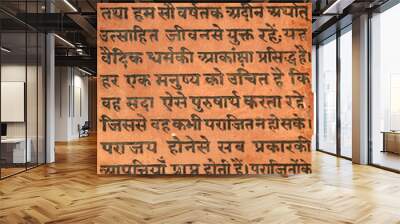 तथा हम सौ वर्षतक अदीन अर्थात्
उत्साहित जीवनसे युक्त रहें; यह
वैदिक धर्मकी आकांक्षा प्रसिद्ध है।
हर एक मनुष्य को उचित है कि
वह सदा ऐसे पुरुषार्थ करता रहे,
जिससे वह कभी पराजित न हो सके।
पराजय होनेसे सब प्रकारकी
आपत्तियाँ प्राप्त होती हैं। पराजितोंके